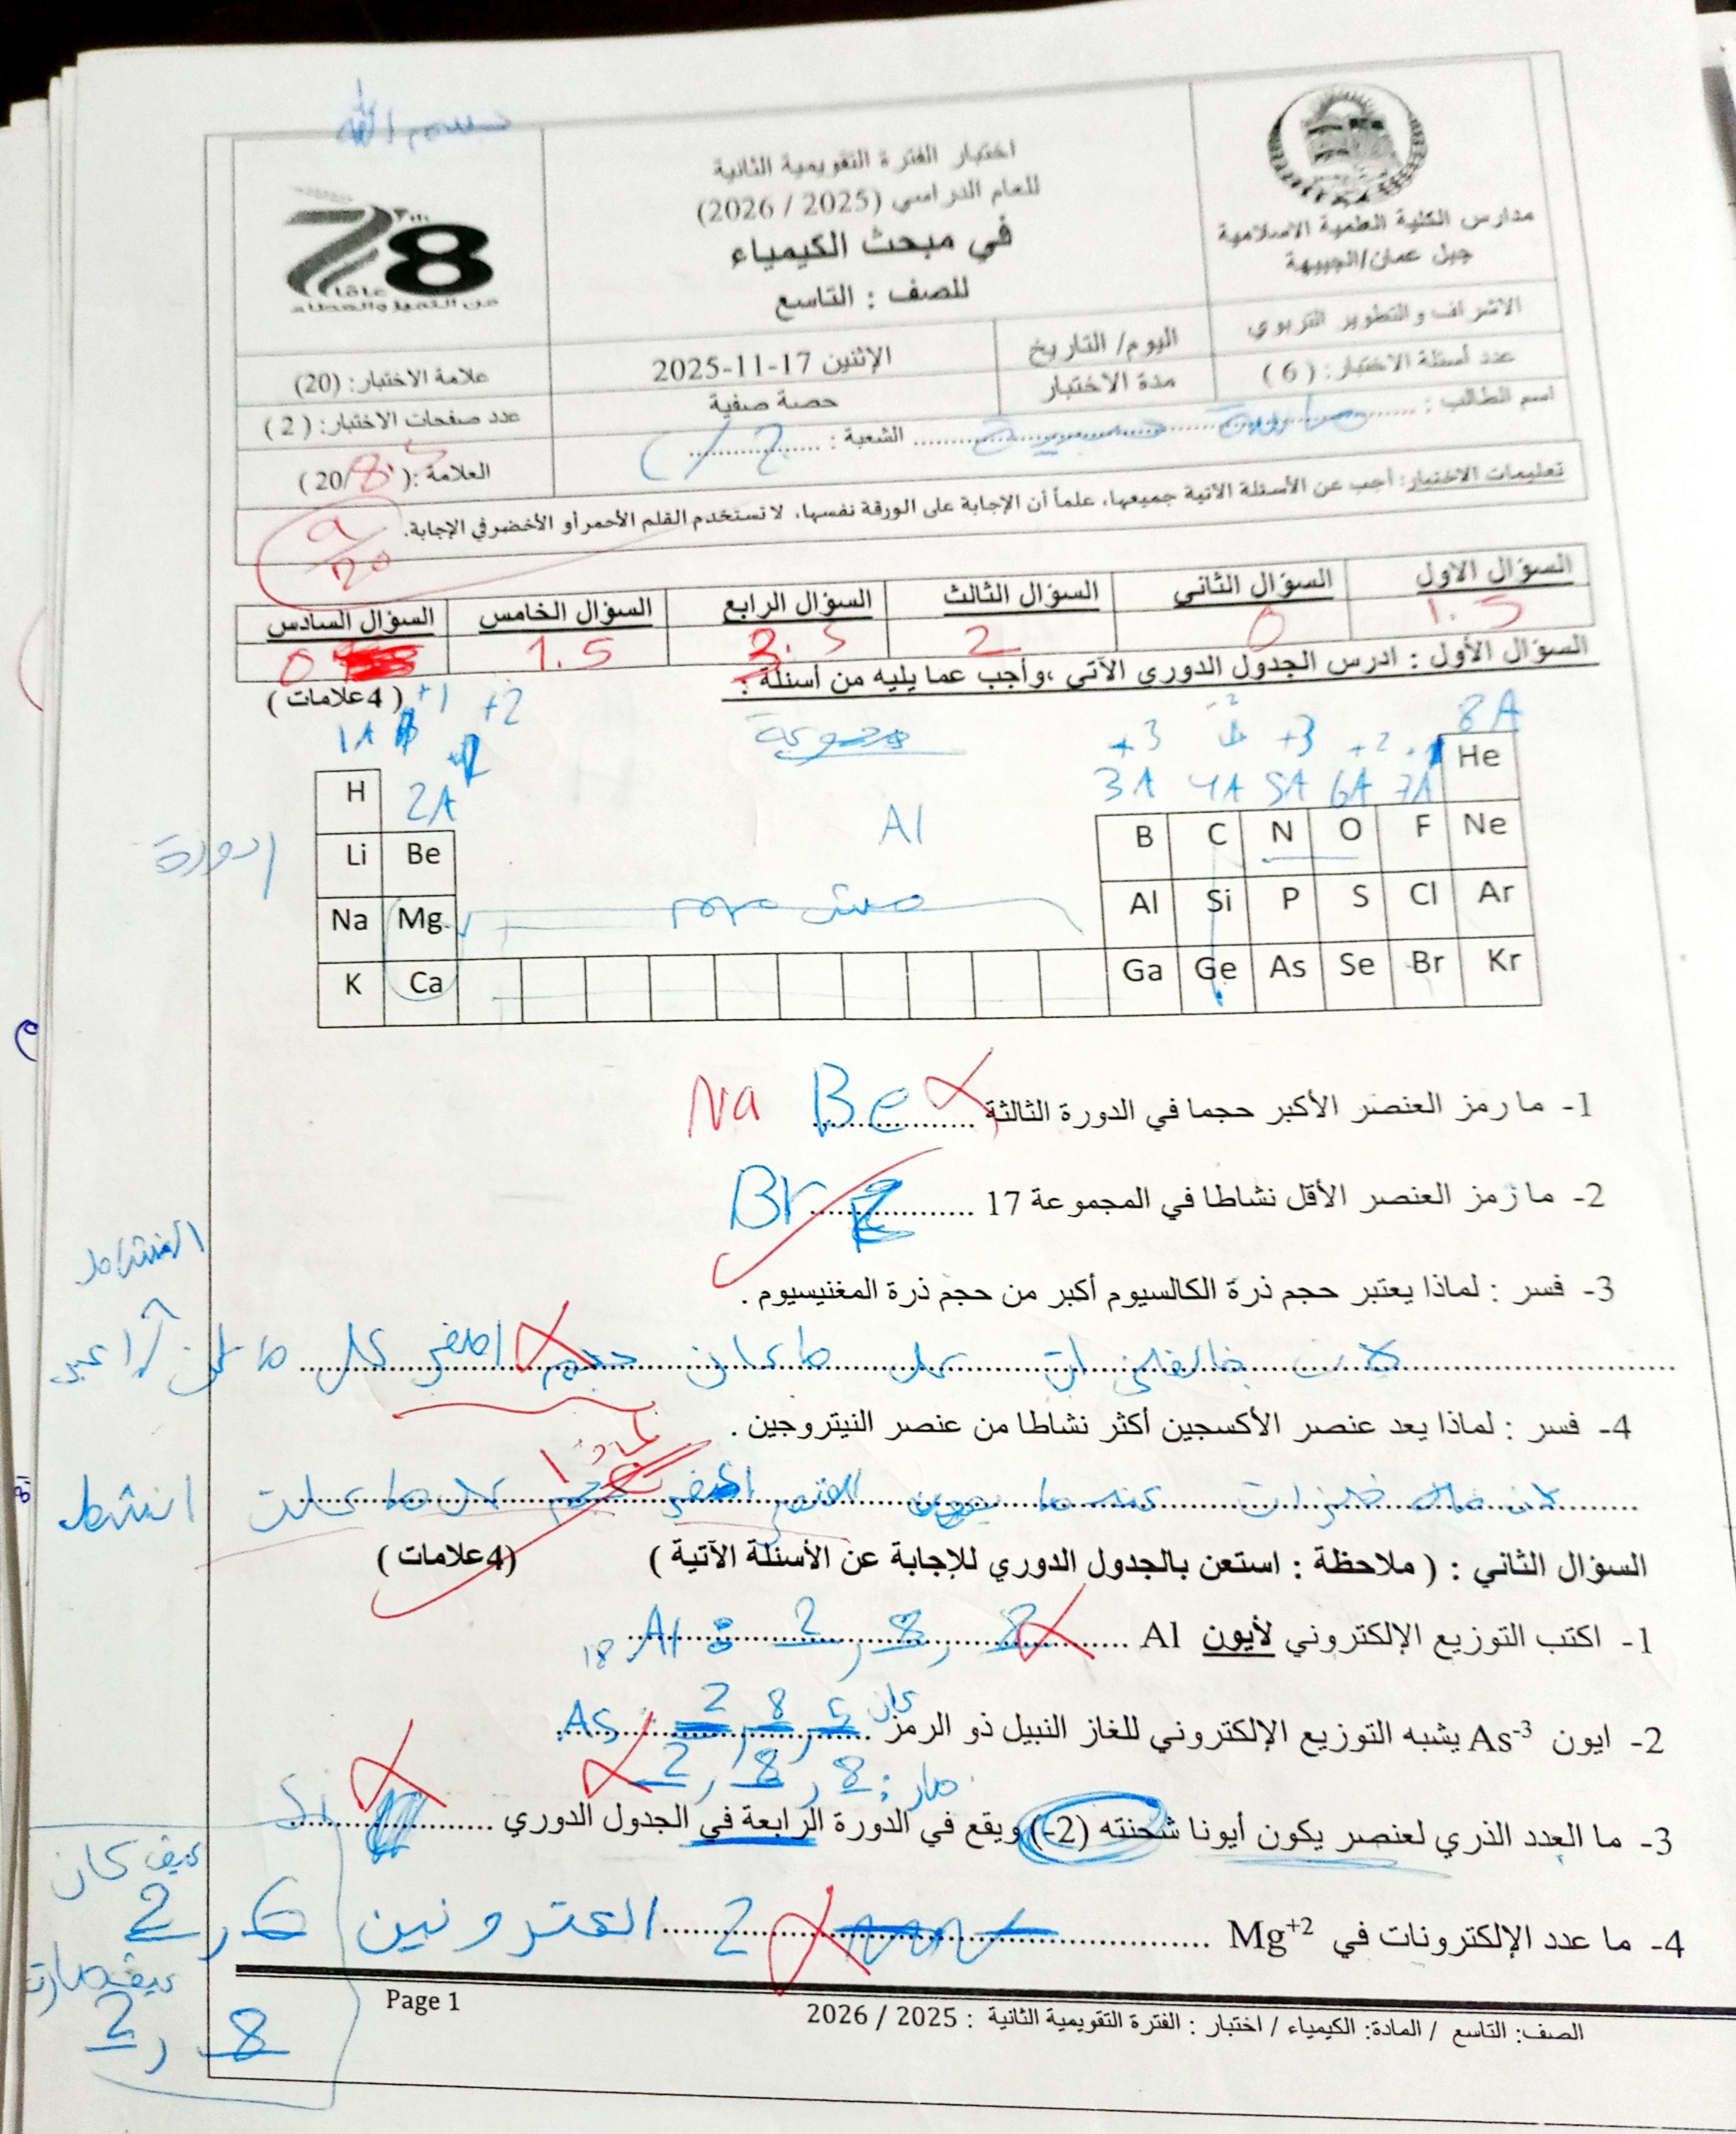 بسم الله
مدارس الكلية العلمية الاسلامية
جبل عمان/الجبيهة
اختبار الفترة التقويمية الثانية
للعام الدراسي (2025 / 2026)
في مبحث الكيمياء
للصف : التاسع
78
الاشراف والتطوير التربوي
عدد أسئلة الاختبار: ( 6 )
اليوم/ التاريخ
الإثنين 17-11-2025
علامة الاختبار: (20)
مدة الاختبار
حصة صفية
عدد صفحات الاختبار: ( 2 )
اسم الطالب : .......... الشعبة : ..........
العلامة :( 8.5 /20 )
تعليمات الاختبار: أجب عن الأسئلة الآتية جميعها، علماً أن الإجابة على الورقة نفسها، لا تستخدم القلم الأحمر أو الأخضر في الإجابة.
9/20
السؤال الاول السؤال الثاني السؤال الثالث السؤال الرابع السؤال الخامس السؤال السادس
1.5 0 2 3.5 1.5 0
السؤال الأول : ادرس الجدول الدوري الآتي ،وأجب عما يليه من أسئلة :
( 4علامات )
+1 +2 +3 +3 +2 8A
1A 2A مجموعة 3A 4A 5A 6A 7A
H He
Al
الدورة
Li Be B C N O F Ne
Na Mg Al Si P S Cl Ar
مش مهم
K Ca Ga Ge As Se Br Kr
1- ما رمز العنصر الأكبر حجما في الدورة الثالثة .......... Be Na
2- ما رمز العنصر الأقل نشاطا في المجموعة 17 .......... Br
3- فسر : لماذا يعتبر حجم ذرة الكالسيوم أكبر من حجم ذرة المغنيسيوم .
كل ما كان حجم اصغر كل ما
النشاط
4- فسر : لماذا يعد عنصر الأكسجين أكثر نشاطا من عنصر النيتروجين .
لان عندما يكون العنصر اصغر حجم كل ما كانت انشط
السؤال الثاني : ( ملاحظة : استعن بالجدول الدوري للإجابة عن الأسئلة الآتية )
(4علامات )
1- اكتب التوزيع الإلكتروني لأيون Al .......... 18Al : 2, 8, 8
2- ايون As-3 يشبه التوزيع الإلكتروني للغاز النبيل ذو الرمز .......... كان 2, 8, 5 As
صار : 2, 8, 8
3- ما العدد الذري لعنصر يكون أيونا شحنته (2-) ويقع في الدورة الرابعة في الجدول الدوري ..........
كيف كان
2, 6
4- ما عدد الإلكترونات في Mg+2 .......... 2 الكترونين
كيف صارت
2, 8
Page 1
الصف: التاسع / المادة: الكيمياء / اختبار : الفترة التقويمية الثانية : 2025 / 2026